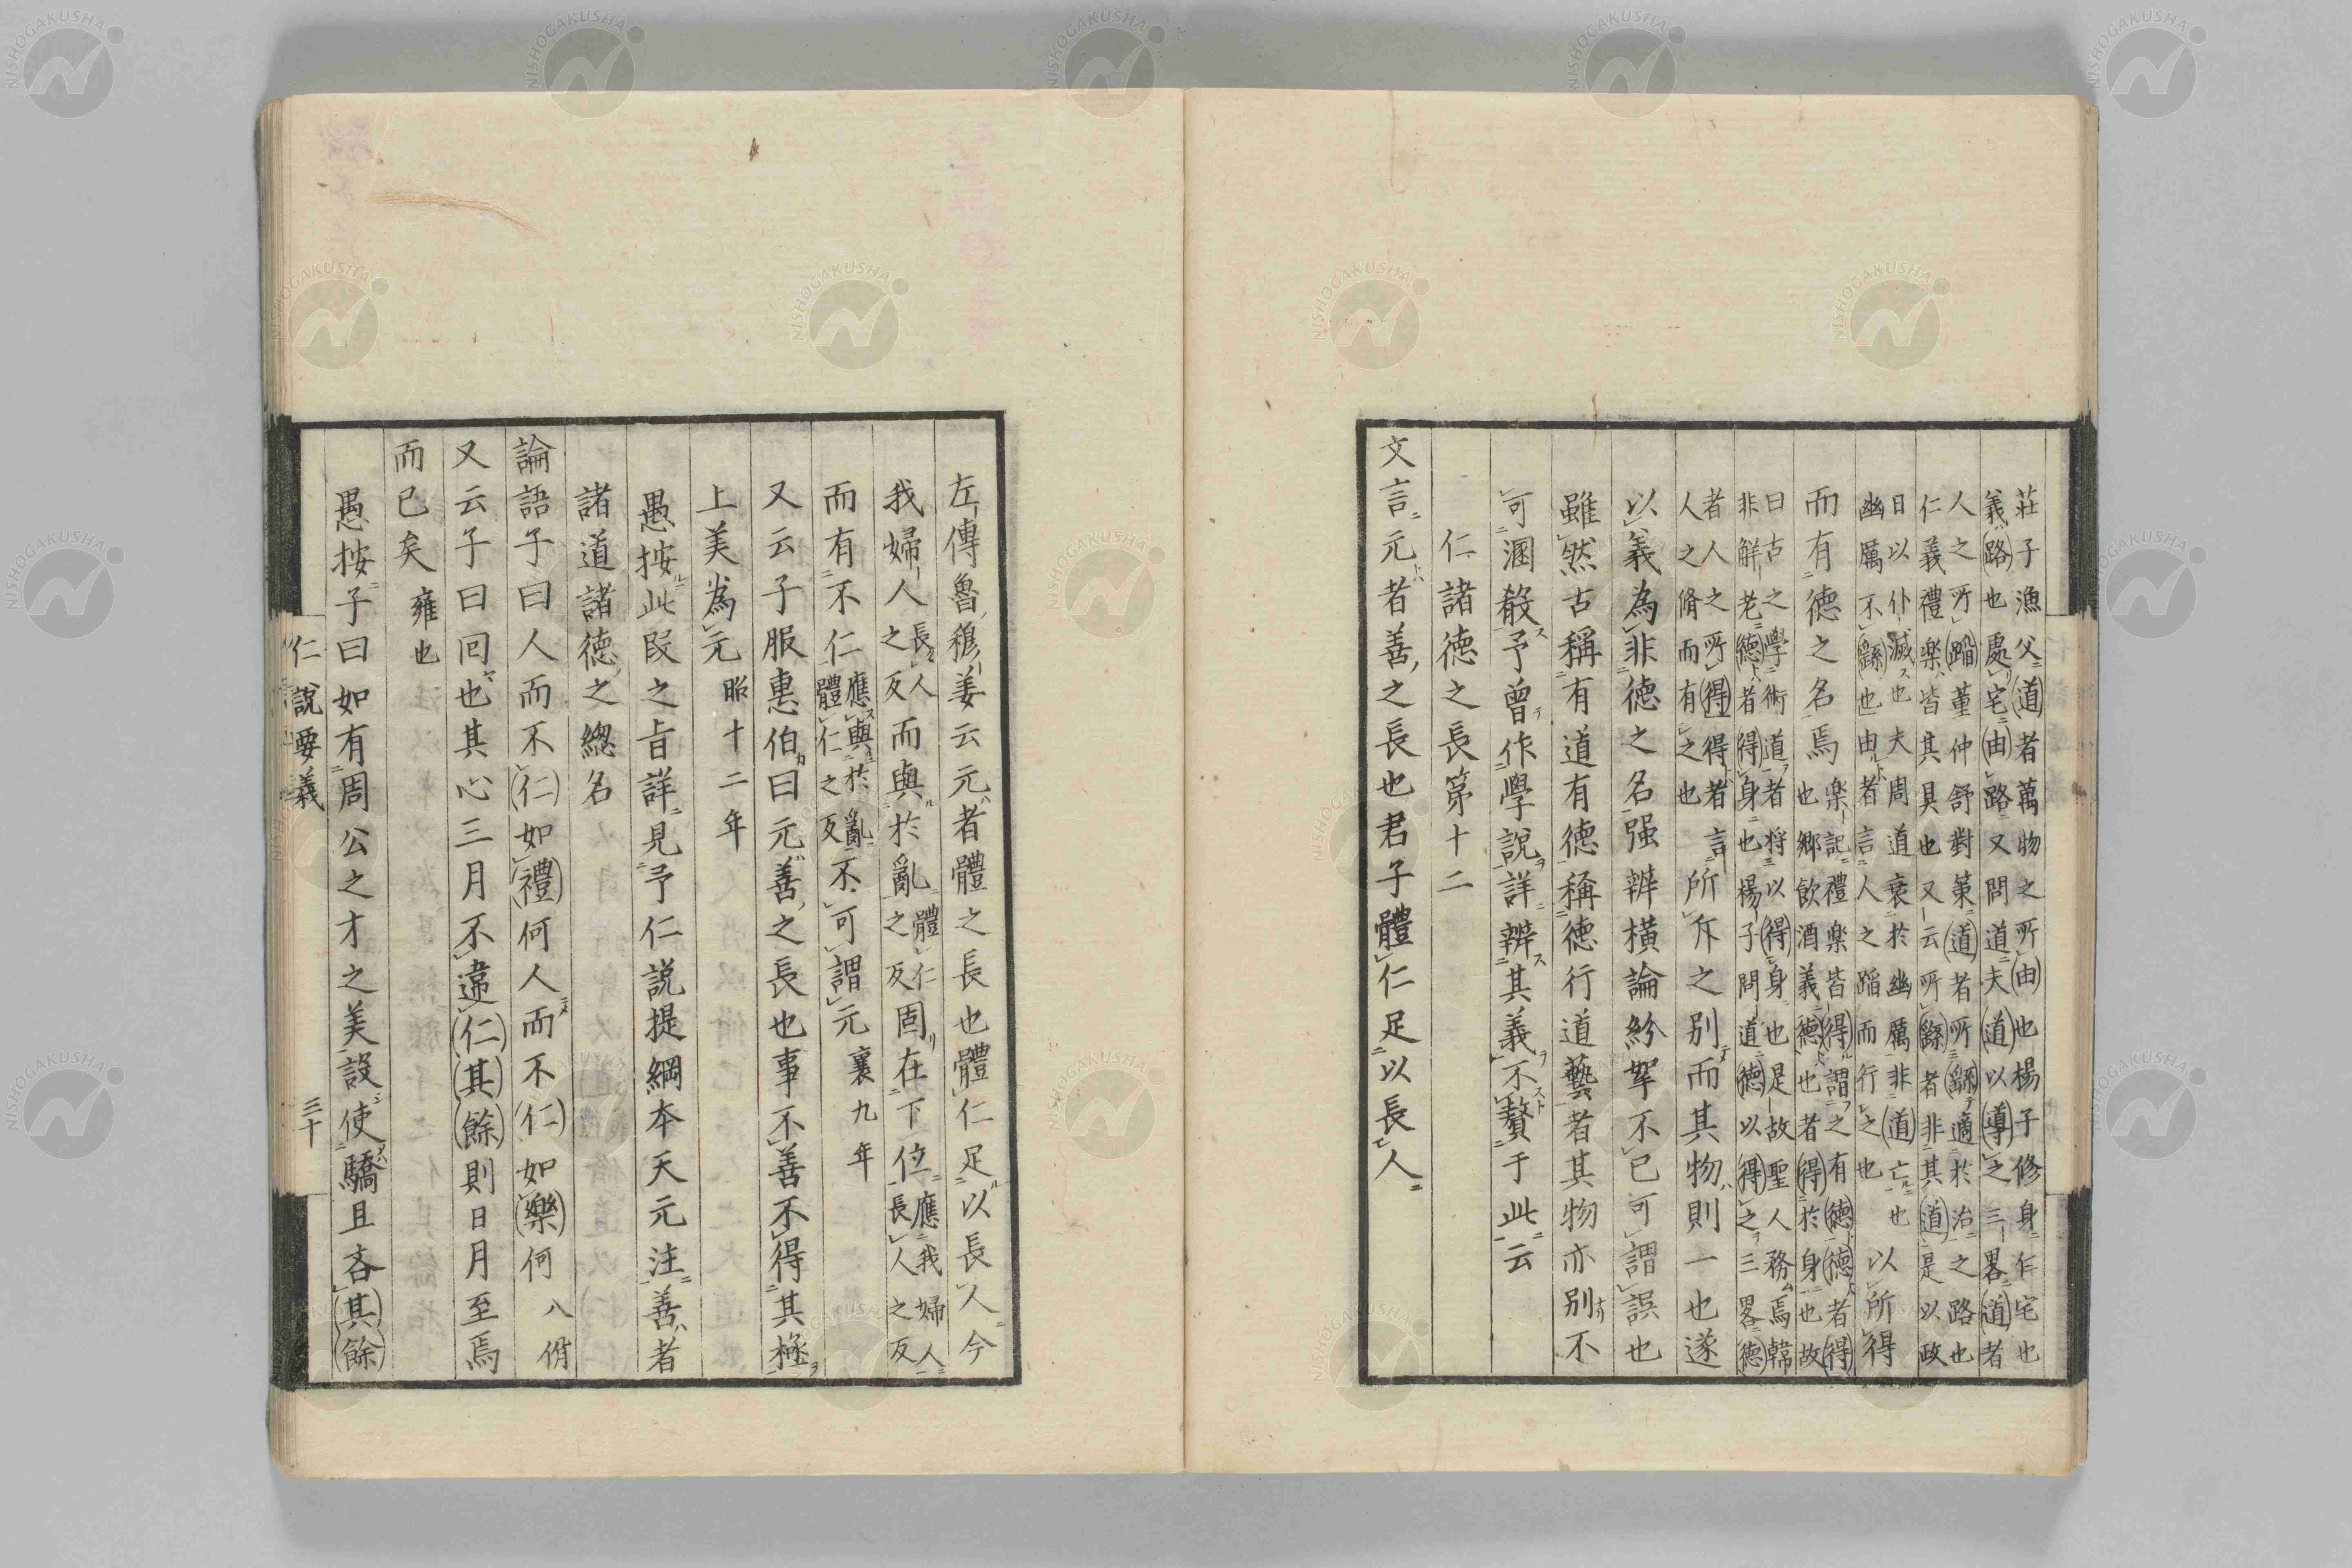 莊子漁父道者萬物之所由也楊子修身仁宅也
義路也處宅由路又問道夫道以導之三畧道者
人之所蹈董仲舒對策道者所繇適於治之路也
仁義禮樂皆其具也又云所繇者非其道是以政
日以仆滅也夫周道衰於幽厲非道亡也
幽厲不繇也由者言人之蹈而行之也以所得
而有德之名焉樂記禮樂皆得謂之有德德者得
也鄉飲酒義德也者得於身也故
曰古之學術道者将以得身也是故聖人務焉韓
非解老德者得身也楊子問道德以得之三畧德
者人之所得得者言所斥之別而其物則一也遂
人之脩而有之也
以義為非德之名强辨横論紛挐不已可謂誤也
雖然古稱有道有德稱德行道藝者其物亦別不
可溷殽予曾作學說詳辨其義不贅于此云
仁諸德之長第十二
文言元者善之長也君子體仁足以長人
左傳魯穆姜云元者體之長也體仁足以長人今
我婦人長人之反而與於亂體仁之反固在下位應我婦人長人之反
而有不仁應與於亂體仁之反不可謂元襄九年
又云子服惠伯曰元善之長也事不善不得其極
上美為元昭十二年
愚按此段之旨詳見予仁説提綱本天元注善者
諸道諸德之總名
論語子曰人而不仁如禮何人而不仁如樂何八佾
又云子曰回也其心三月不違仁其餘則日月至焉
而已矣雍也
愚按子曰如有周公之才之美設使驕且吝其餘
仁說要義
三十